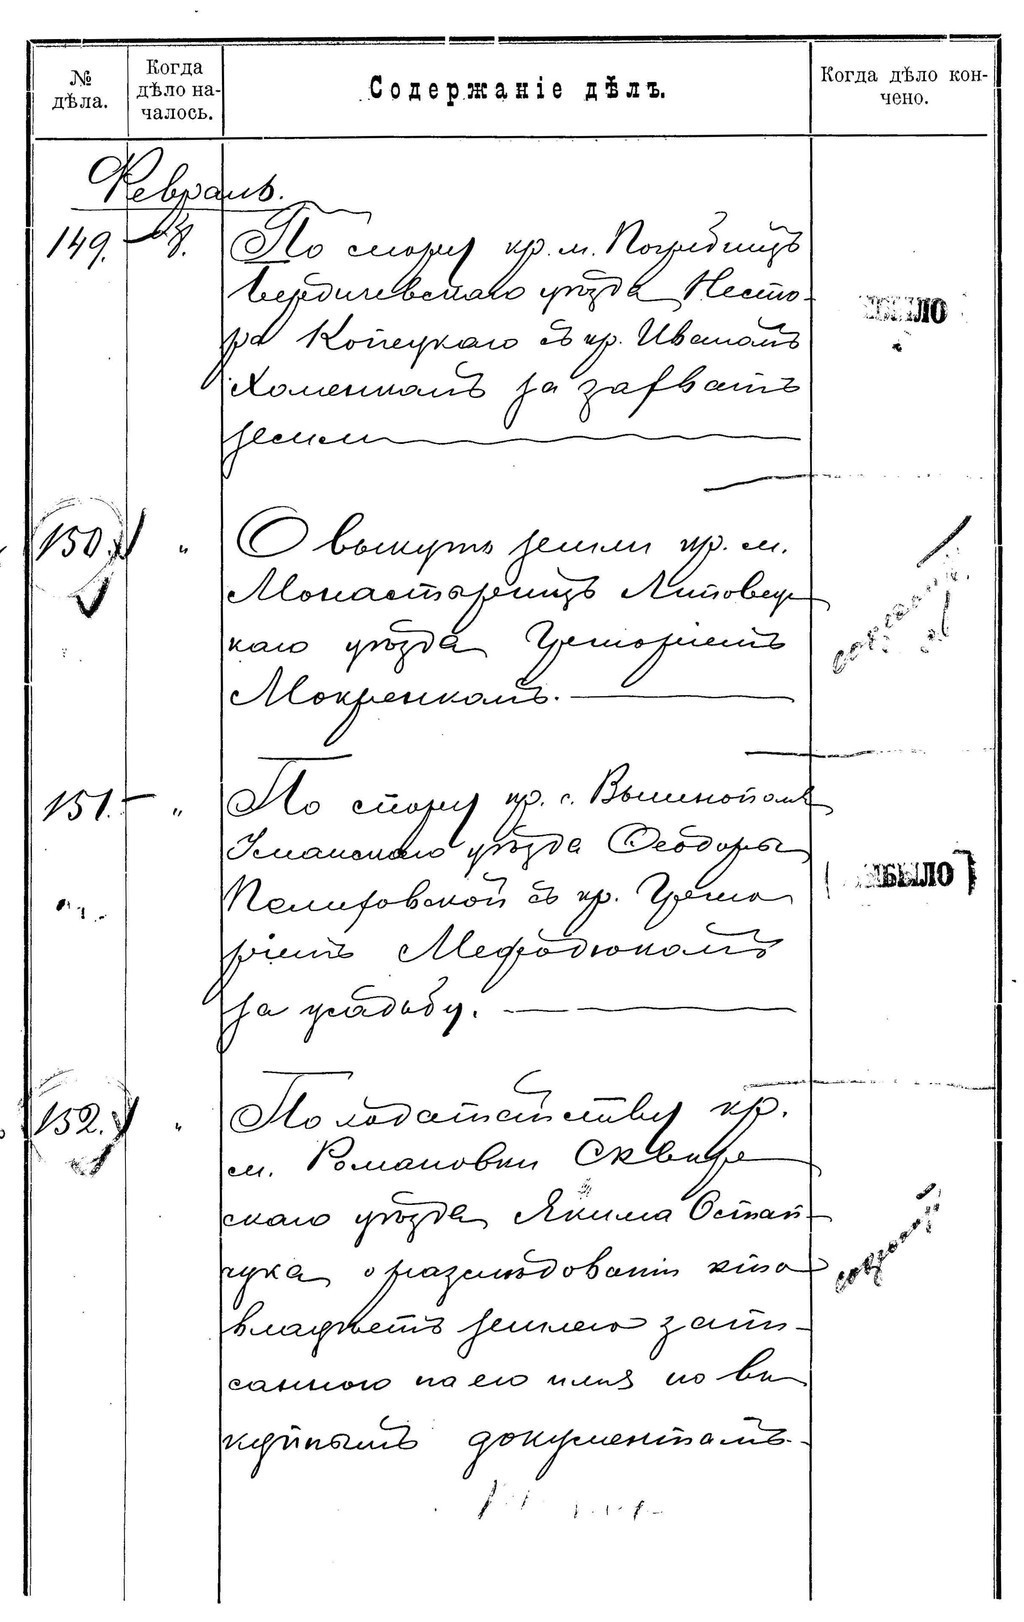 № дѣла.
Когда дѣло на-
чалось.
Содержаніе дѣлъ.
Когда дѣло кон-
чено.
Февраль.
149. 8. По спору кр. м. Погребищъ
Бердичевскаго уѣзда Несто-
ра Копецкаго съ кр. Иваномъ
Хоменкомъ за захватъ
земли
150. " О выкупѣ земли кр. м.
Монастырищъ Липовец
каго уѣзда Григоріемъ
Мокренкомъ.
151. " По спору кр. с. Вышнополя
Уманскаго уѣзда Ѳеодоры
съ кр. Григо
ріемъ Мефодюкомъ
за усадьбу.
ВЫБЫЛО
152. " По ходатайству кр.
м. Романовки Сквир
скаго уѣзда Якима Остап-
чука о разслѣдованіи кто
владѣетъ землею запи-
санною на его имя по вы
купнымъ документамъ.